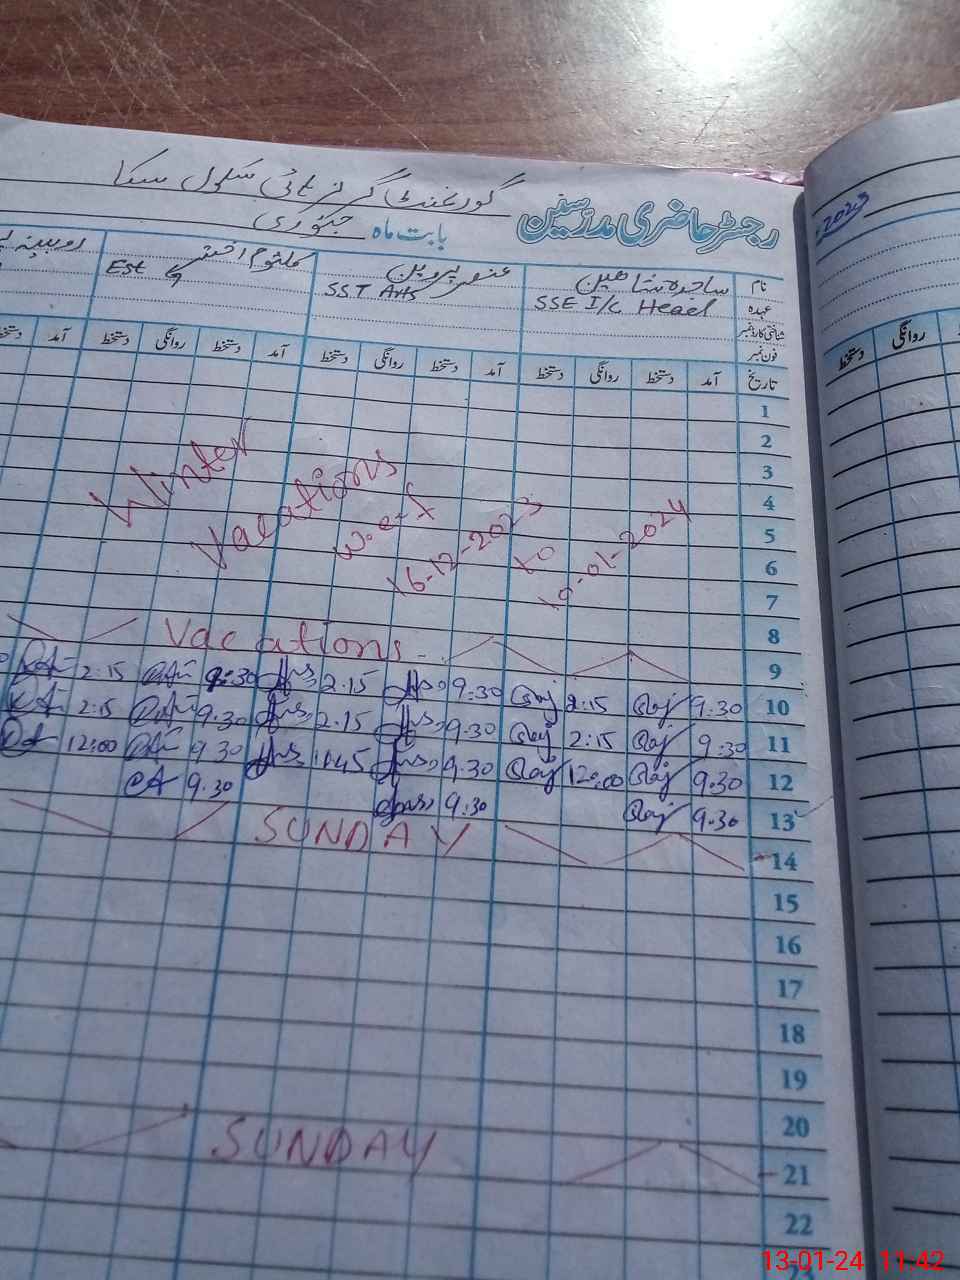 گورنمنٹ گرلز ہائی سکول سکا
رجسٹر حاضری مدرسین
بابت ماہ جنوری
2023
نام ساجدہ شاہین عنصر پروین کلثوم اختر روبینہ
عہدہ SSE I/C Head SST Arts Est
شناختی کارڈ نمبر
فون نمبر
تاریخ آمد دستخط روانگی دستخط آمد دستخط روانگی دستخط آمد دستخط روانگی دستخط آمد دستخط
روانگی دستخط
1
2
3
4
5
6
7
8
9
Winter Vacations w.e.f 16-12-2023 to 10-01-2024
Vacations
10 9:30 2:15 9:30 2:15 9:30 2:15
11 9:30 2:15 9:30 2:15 9.30 2:15
12 9:30 12:00 9:30 1:45 9.30 12:00
13 9:30 9:30 9.30
14 SUNDAY
15
16
17
18
19
20
21 SUNDAY
22
23
13-01-24 11:42